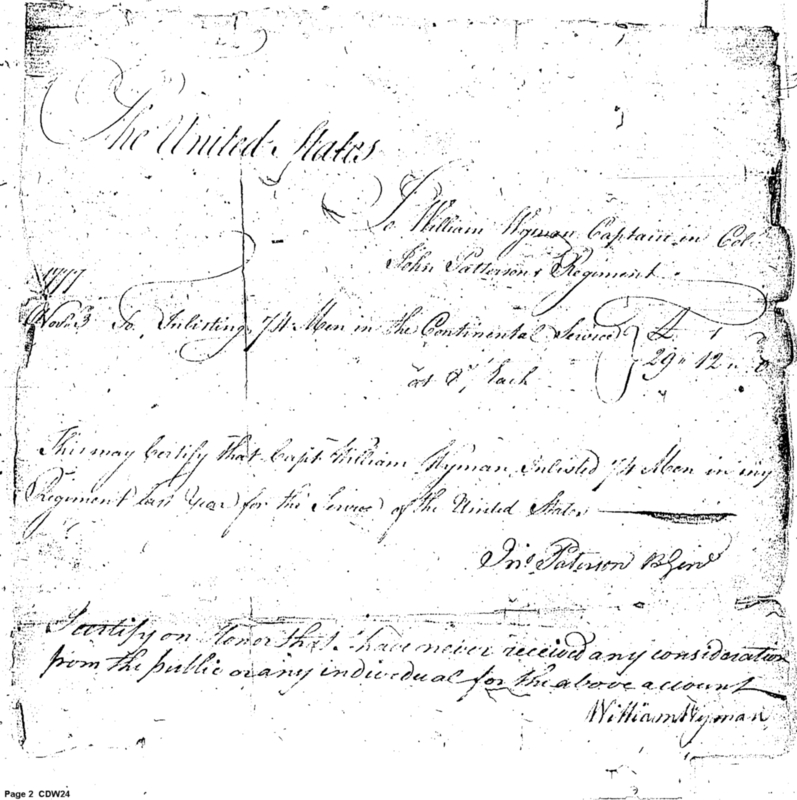 The United States
To William Wyman Captain in Col.
John Pattersons Regiment
1777
Nov. 3 To Inlisting 74 Men in the Continental Service £
29 " 12 " 0
at 8/ Each
This may Certify that Capt. William Wyman Inlisted 74 Men in my
Regiment last Year for the Service of the United States
Jno. Paterson B Genl
I certify on Honor that I have never received any consideration
from the public or any individual for the above account
William Wyman
Page 2 CDW24